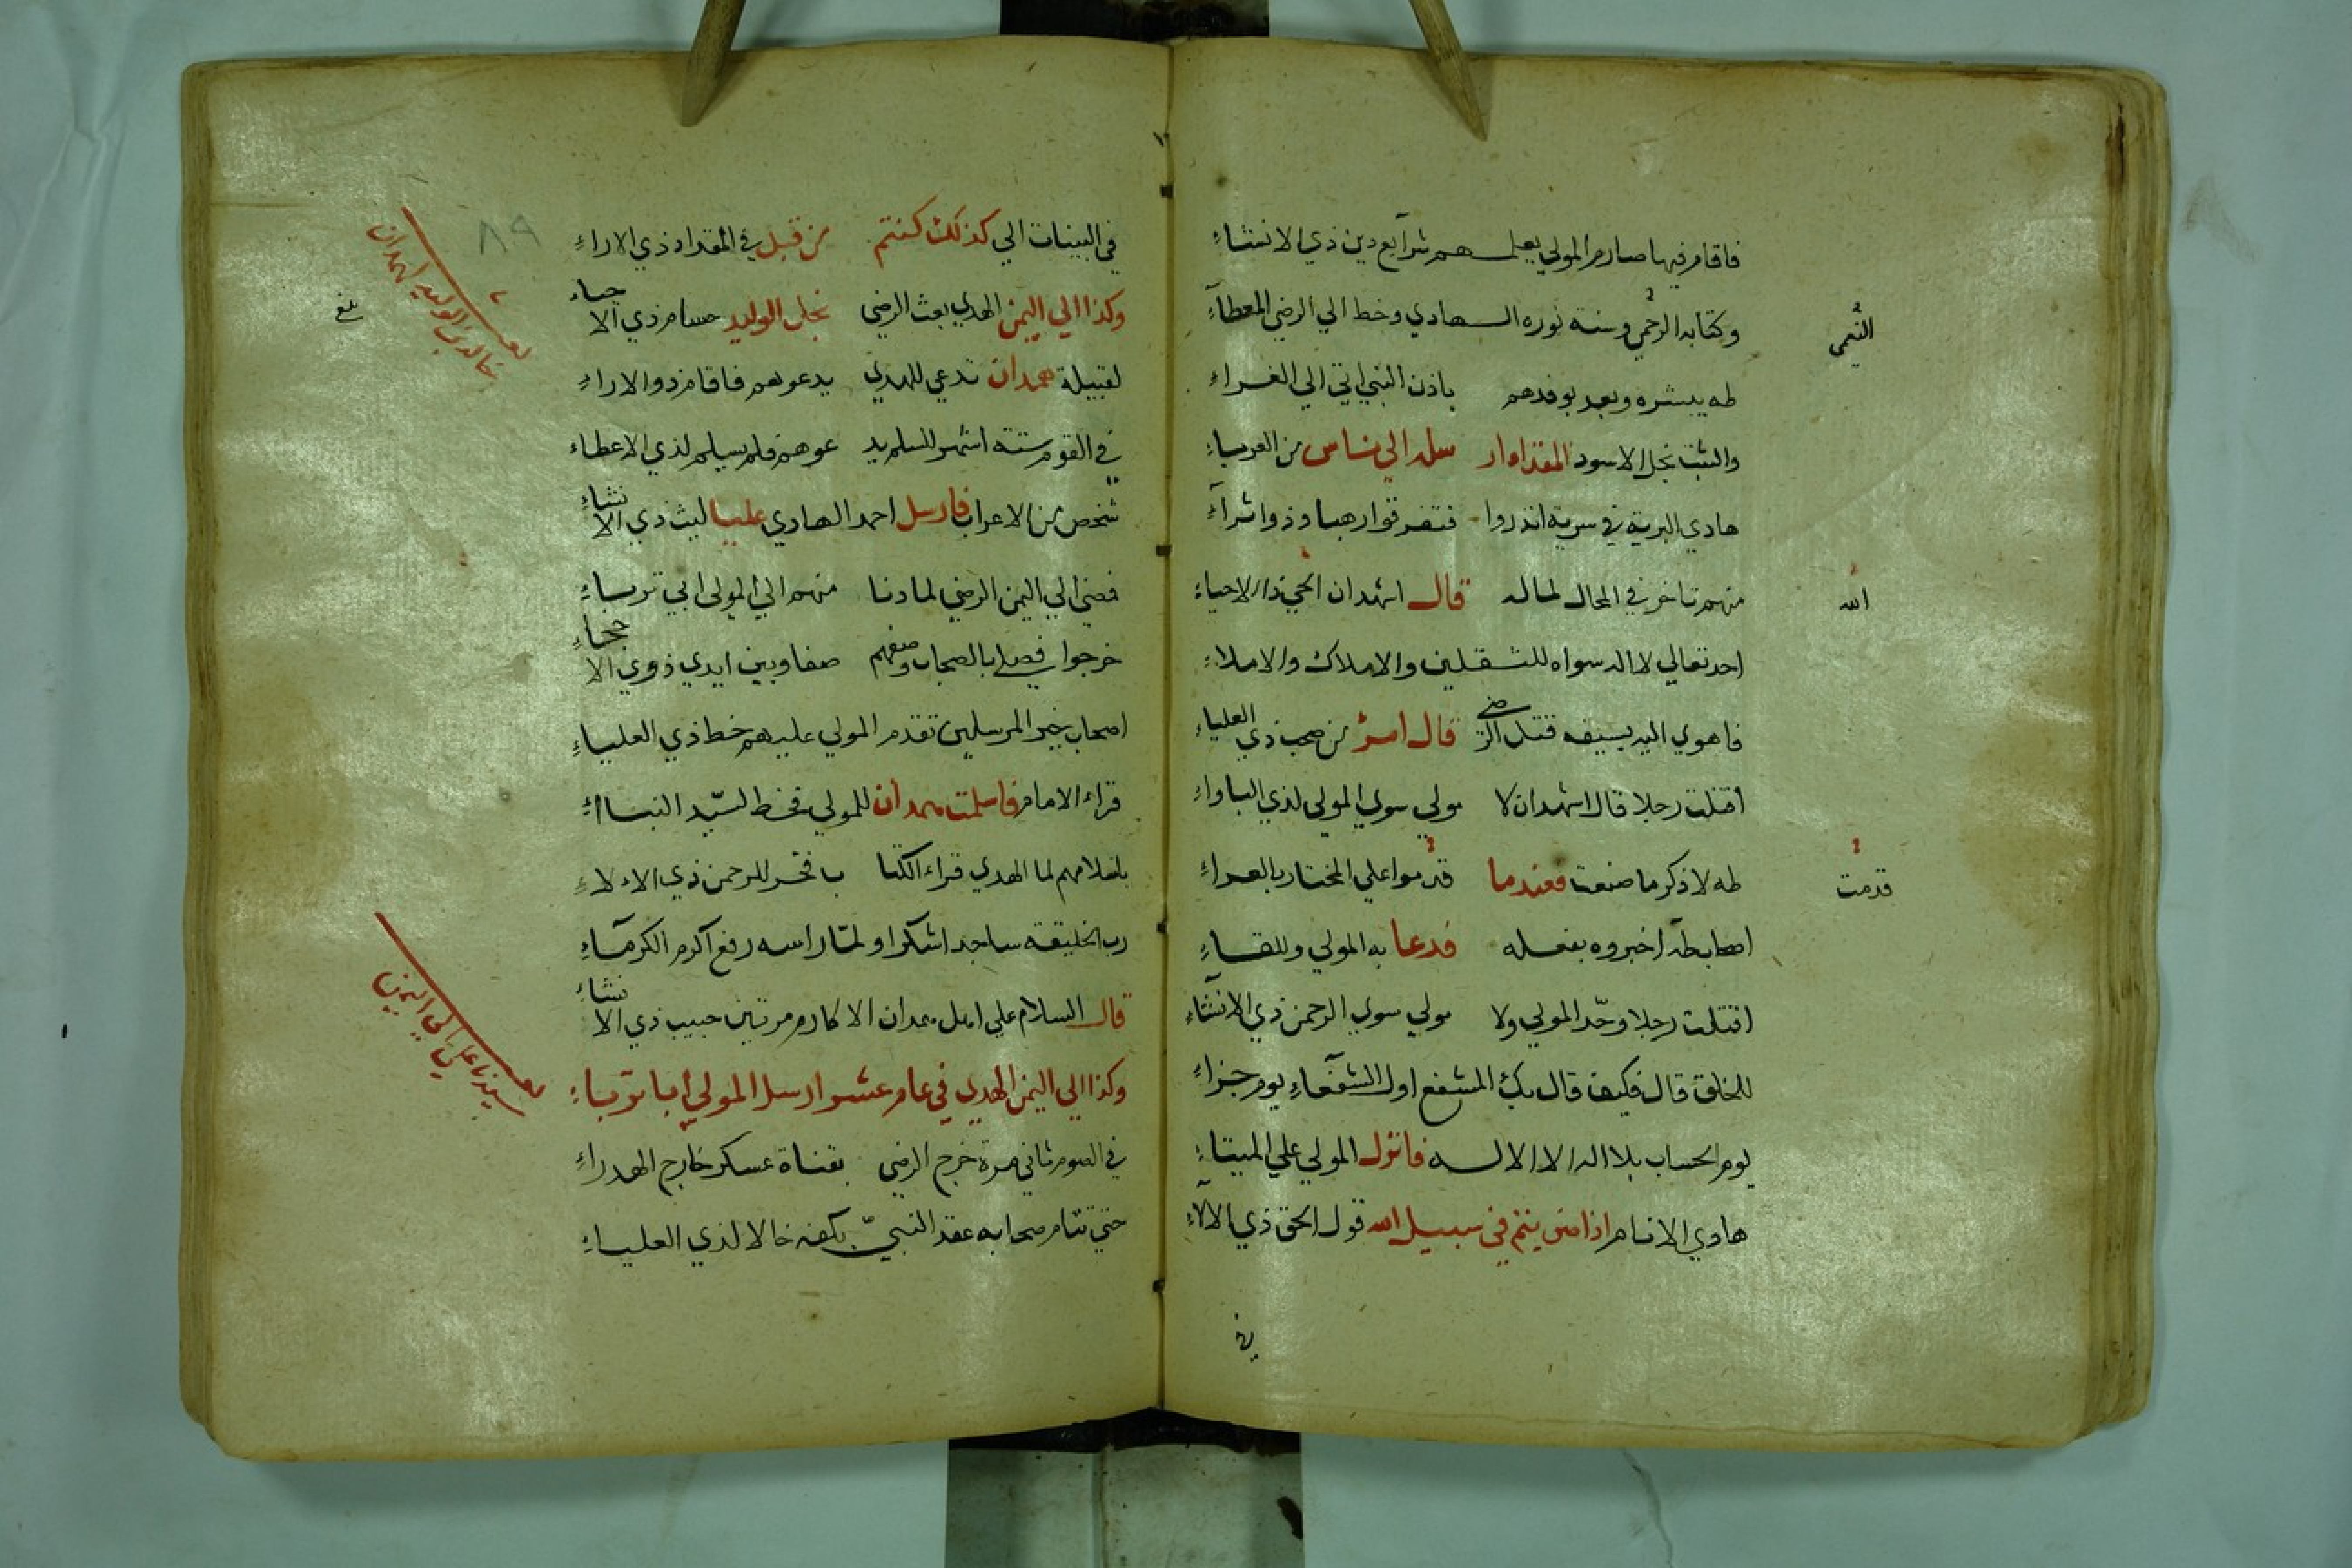 فاقام فيها صارم المولي يعلمهم شرايع دين ذي الانشاء
وكتابه الرحمي وسنة نوره الهادي وخط الي الرضي المعطاء
النعمي
طه يبشره وبعد بوفدهم باذن النبي اتي الي الغراء
والثبت نجل الاسود المقداد ار سله الي ناس من العرباء
هادي البرية في سرية انذروا فتفرقوا رهبا وذو اثراء
منهم تاخر في المحال لماله قال اشهد ان الحي ذا الاحياء
الله
احد تعالي لا اله سواه للثقلين والاملاك والاملاء
فاهوي اليه بسيفه قتل الرضي قال امرؤ من صحب ذي العلياء
اقتلت رجلا قال اشهد ان لا مولي سوي المولي لذي الباواء
طه لاذكر ما صنعت فعندما قدموا علي المختار بالعراء
قدمت
اصحاب طه اخبروه بفعله فدعا به المولي وللقاء
اقتلت رجلا وحّد المولي ولا مولي سوي الرحمن ذي الانشاء
للخلق قال فكيف قال بك المشفع اول الشفعاء يوم جزاء
يوم الحساب بلا اله الا الاله فانزل المولي علي الميتاء
هادي الانام اذا ضربتم في سبيل الله قول الحق ذي الالاء
في
٨٩
في البينات الي كذلك كنتم من قبل في المقداد ذي الاراء
وكذا الي اليمن الهدي بعث الرضي نجل الوليد حسام ذي الاحياء
بعث خالد بن الوليد الي همدان
بلغ
لقبيلة همدان تدعي للهدي يدعوهم فاقام ذو الاراء
في القوم ستة اشهر للسلم يد عوهم فلم يسلم لذي الاعطاء
شخص من الاعراب فارسل احمد الهادي عليا ليث ذي الانشاء
فمضي الي اليمن الرضي لما دنا منهم الي المولي ابي ترباء
خرجوا فصلي بالصحاب وصفهم صفا وبين ايدي ذوي الاحجاء
اصحاب خير المرسلين تقدم المولي عليهم خط ذي العلياء
قراء الامام فاسلمت همدان للمولي فخط لسيّد النباء
باسلامهم لما الهدي قراء الكتا ب فخر للرحمن ذي الالاء
رب الخليقة ساجدا شكرا ولمّا راسه رفع اكرم الكرماء
قال السلام علي اهل همدان الاكارم مرتين حبيب ذي الانشاء
وكذا الي اليمن الهدي في عام عشر ارسل المولي ابا ترباء
بعث سيدنا علي الي اليمن
في الصوم ثاني مرة خرج الرضي بقناة عسكر خارج الهدراء
حتي تتام صحابه عقد النبيّ بكفه خالا لذي العلياء